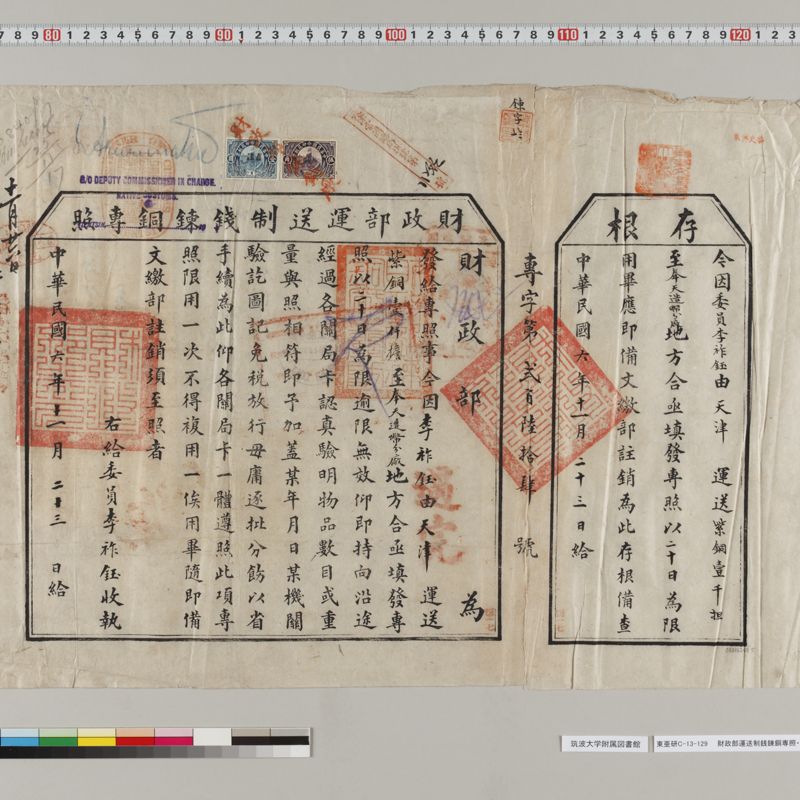 存根
今因委員李祚鈺由天津 運送紫銅壹千担
至奉天造幣分廠地方合亟填發專照以二十日為限
用畢應即備文繳部註銷為此存根備查
中華民國六年十一月二十三日給
專字第貳百陸拾肆號
財政部運送制錢鍊銅專照
財政部 為
發給專照事今因李祚鈺由天津 運送
紫銅壹仟擔至奉天造幣分廠地方合亟填發專
照以二十日為限逾限無效仰即持向沿途
經過各關局卡認真驗明物品數目或重
量與照相符即予加蓋某年月日某機關
驗訖圖記免稅放行毋庸逐批分飭以省
手續為此仰各關局卡一體遵照此項專
照限用一次不得複用一俟用畢隨即備
文繳部註銷須至照者
右給委員李祚鈺收執
中華民國六年十一月二十三日給
十一月廿六日
S/O DEPUTY COMMISSIONER IN CHARGE.
NATIVE CUSTOMS.
筑波大学附属図書館
東亜研C-13-129 財政部運送制銭錬銅専照・
7 8 9 80 1 2 3 4 5 6 7 8 9 90 1 2 3 4 5 6 7 8 9 100 1 2 3 4 5 6 7 8 9 110 1 2 3 4 5 6 7 8 9 120 1 2 3